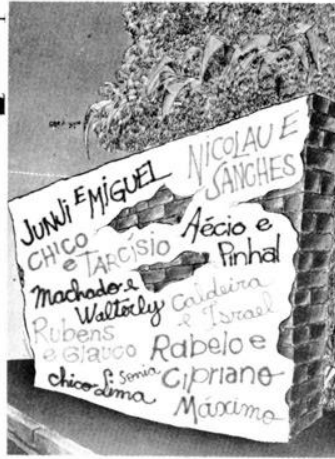 JUNJI E MIGUEL
NICOLAU E
SANCHES
CHICO
e TARCÍSIO
Aécio e
Pinhal
Machado e
Walterly
Caldeira
e Israel
Rubens
e Glauco
Rabelo e
Cipriano
chico Lima
Sonia
Máximo